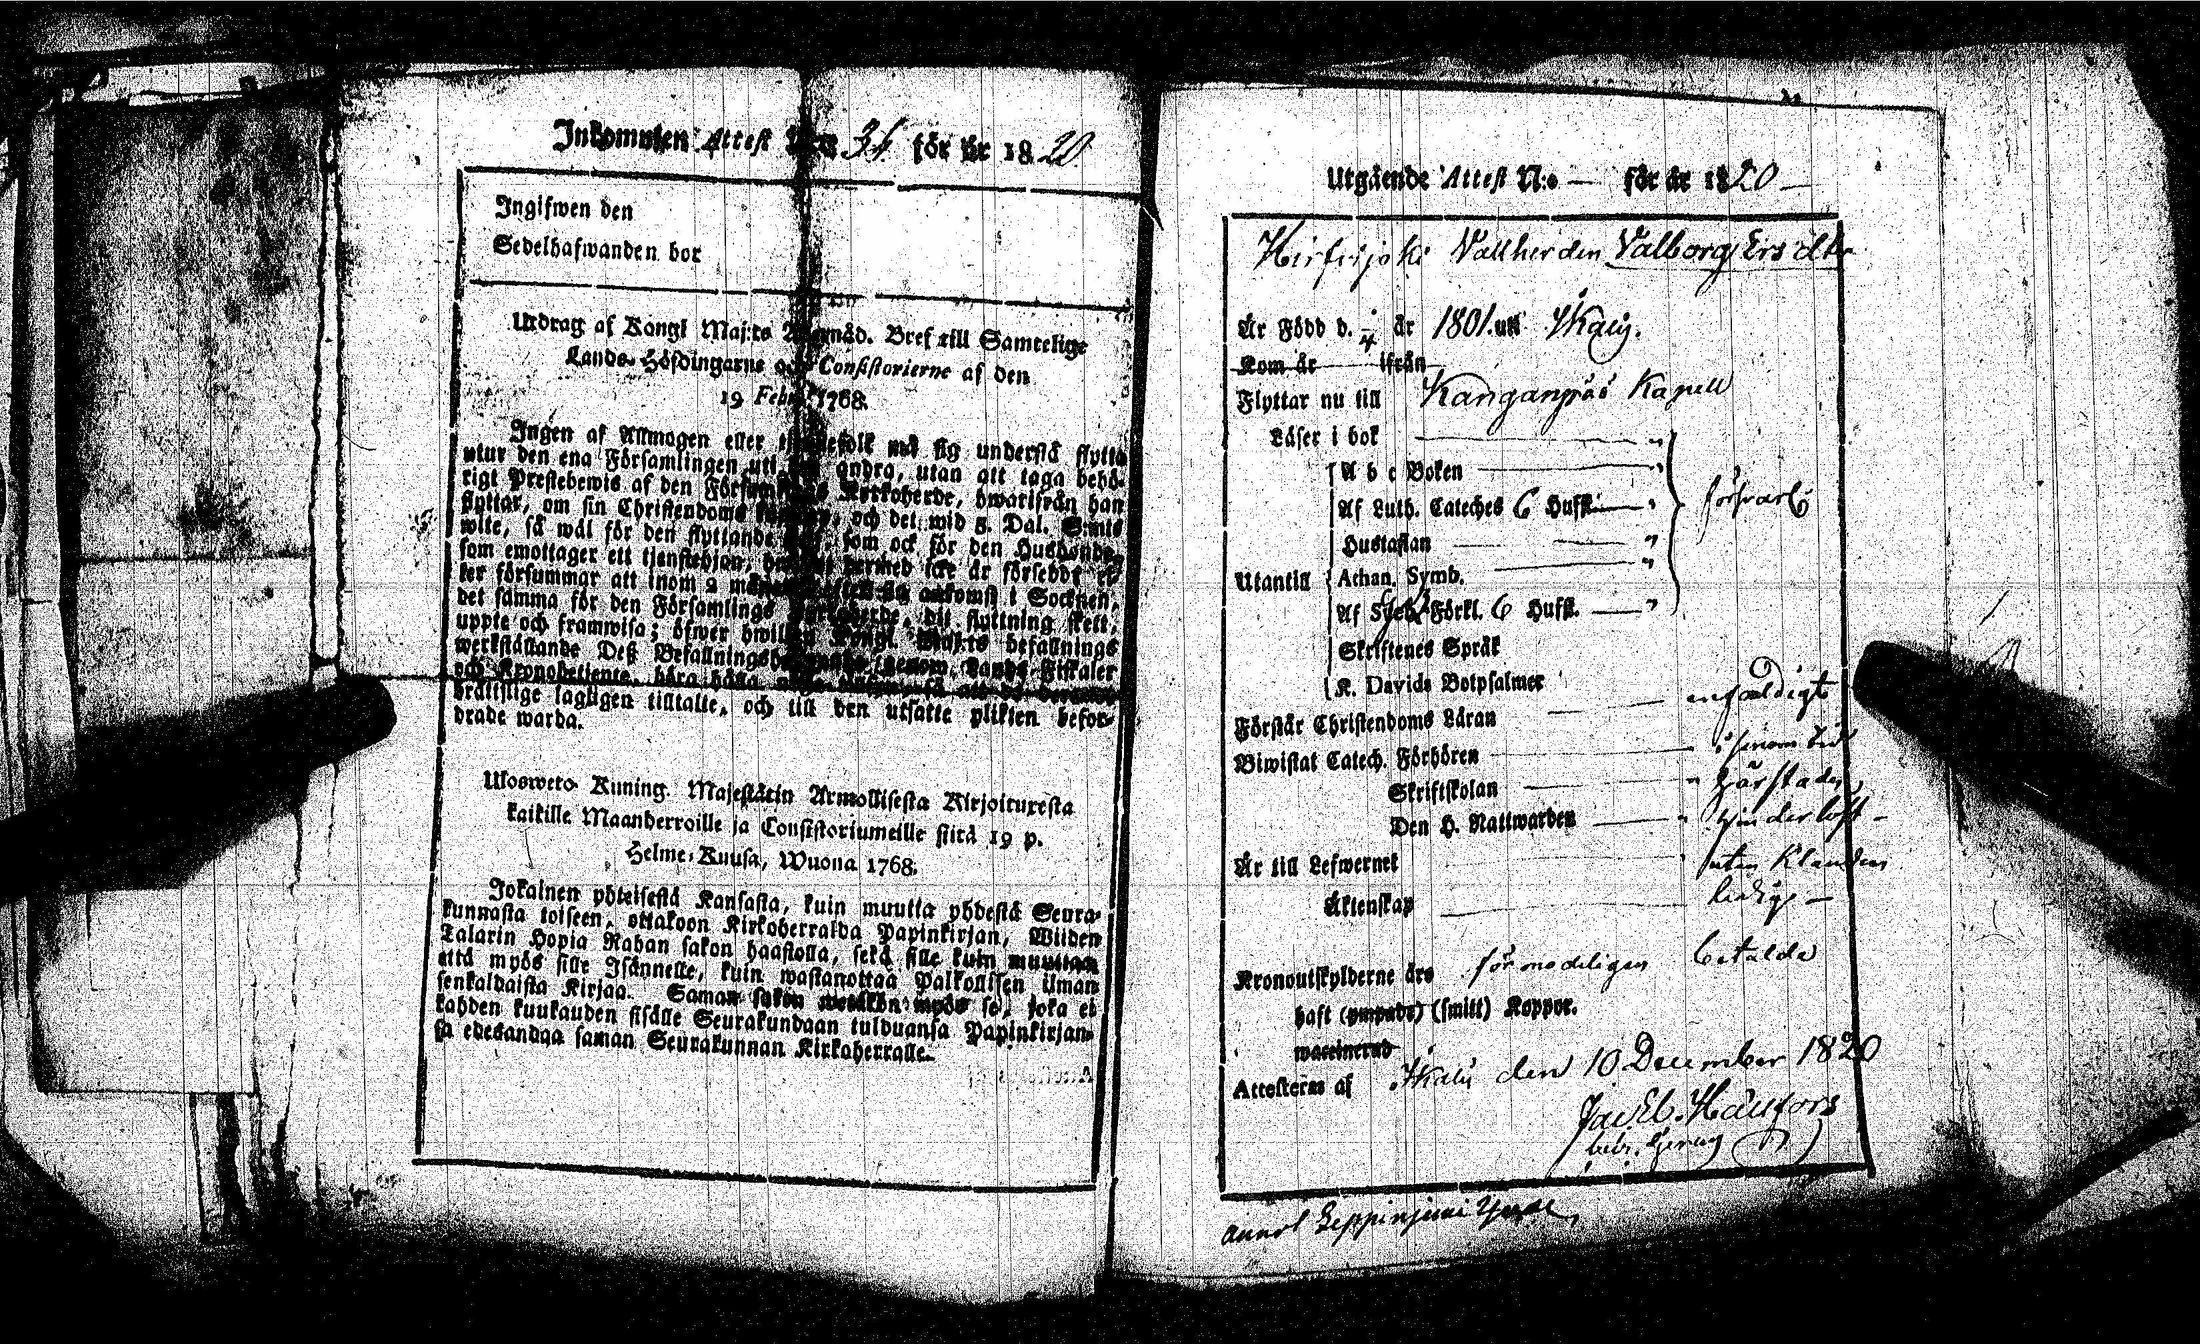 Inkomnten Attest N:o 34 för år 1820
Ingifwen den
Sedelhafwanden bor
Utdrag af Kongl Maj:ts Allernåd. Bref till Samtelige
Lands-Höfdingarne och Consistorierne af den
19 Febr. 1768.
Ingen af Allmogen eller tjenstefolk må sig understå flytta
utur den ena Församlingen uti den andra, utan att taga behö-
rigt Prestebewis af den Församlings Kyrkoherde, hwarifrån han
flyttar, om sin Christendoms kunskap, och det wid 5. Dal. S:mts
wite, så wäl för den flyttande sjelf, som ock för den Husbonde,
som emottager ett tjenstehjon, hwilket dermed icke är försedt; el-
ler försummar att inom 2 månader efter sin ankomst i Socknen,
det samma för den Församlings Kyrkoherde, dit flyttning skett,
uppte och framwisa; öfwer hwilken Kongl. Maj:ts befallnings
werkställande Deß Befallningshafwande, genom Lands-Fiskaler
och Kronobetjente,böra hålla
bråttslige lagligen tilltalte, och till den utsatte plikten befor-
drade warda.
Ulosweto Kuning. Majestätin Armollisesta Kirjoituxesta
kaikille Maanherroille ja Consistoriumeille siitä 19 p.
Helme-Kuusa, Wuona 1768.
Jokainen yhteisestä Kansasta, kuin muutta yhdestä Seura-
kunnasta toiseen, ottakoon Kirkoherralda Papinkirjan, Wiiden
Talarin Hopia Rahan sakon haastolla, sekä sille kuin muuttaa
että myös sille Isännelle, kuin wastanottaa Palkollisen ilman
senkaldaista Kirjaa. Saman sakon wetäkön myös se, joka ei
kahden kuukauden sisälle Seurakundaan tulduansa Papinkirjan-
sa edesandaa saman Seurakunnan Kirkoherralle.
Utgående Attest N:o — för år 1820 —
Vallherden Valborg Ersdtr
Är Född d. 1/4 år 1801. uti Ikalis.
Kom år ifrån
Flyttar nu till Kanganpää Kapell
Läser i bok "
A b c Boken "
Af Luth. Cateches 6 Hufst. " försvarl.
Hustaflan "
Utantill Athan. Symb. "
Af Sveb. Förkl. 6 Hufst. "
Skriftenes Språk
K. Davids Botpsalmer
Förstår Christendoms Läran enfaldigt
Biwistat Catech. Förhören
Skriftskolan "
Den H. Nattwarden "
Är till Lefwernet utan Klander
Äktenskap ledig —
Kronoutskylderne äro förmodeligen betalde
haft (ympade) (smitt) Koppor.
waccinerad
Attesteras af Ikalis den 10 December 1820